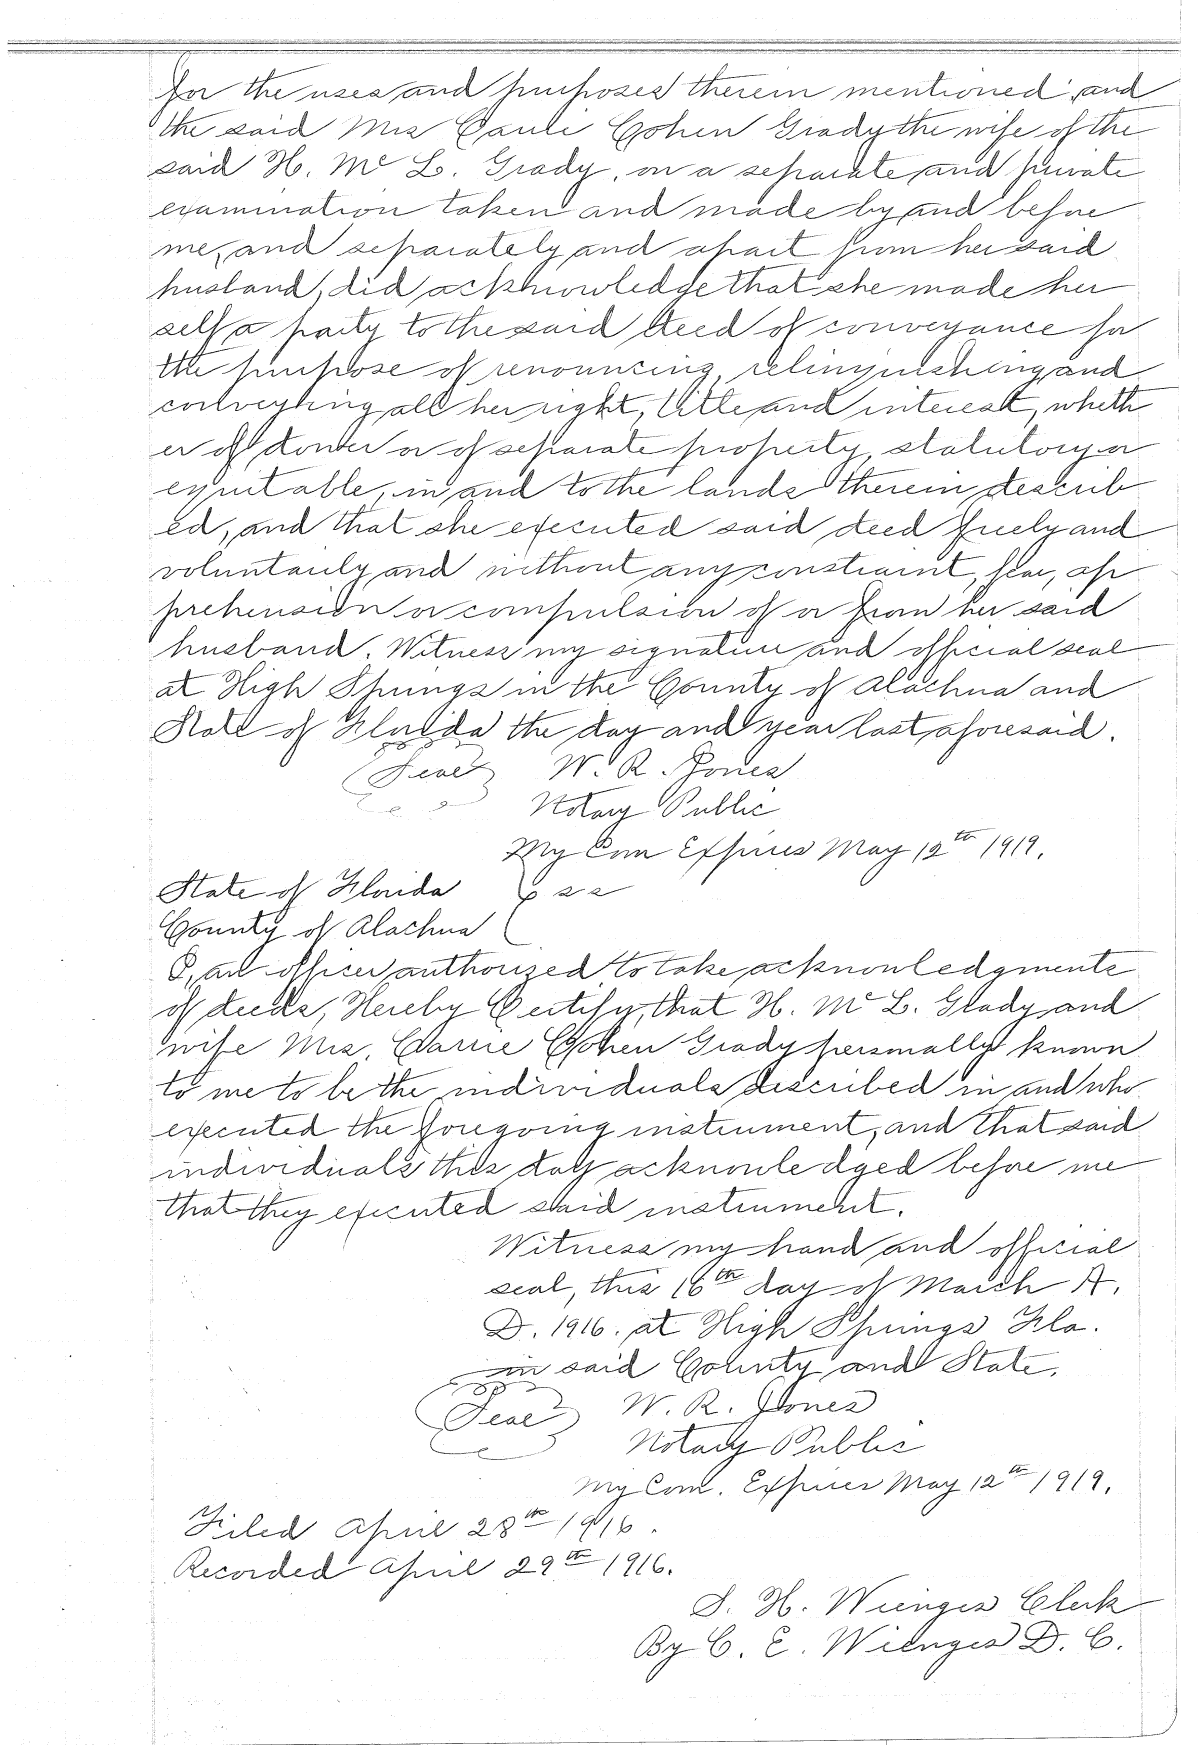 for the uses and purposes therein mentioned; and
the said Mrs Carrie Cohen Grady the wife of the
said H. Mc L. Grady, on a separate and private
examination taken and made by and before
me, and separately and apart from her said
husband, did acknowledge that she made her
self a party to the said deed of conveyance for
the purpose of renouncing, relinquishing and
conveying all her right, title and interest, wheth
er of dower or of separate property, statutory or
equitable, in and to the lands therein describ
ed, and that she executed said deed freely and
voluntarily and without any constraint, fear, ap
prehension or compulsion of or from her said
husband. Witness my signature and official seal
at High Springs in the County of Alachua and
State of Florida the day and year last aforesaid.
Seal W. R. Jones
Notary Public
My Com Expires May 12th 1919.
State of Florida } ss
County of Alachua
I, an officer authorized to take acknowledgments
of deeds, Hereby Certify, that H. Mc L. Grady and
wife Mrs. Carrie Cohen Grady personally known
to me to be the individuals described in and who
executed the foregoing instrument, and that said
individuals this day acknowledged before me
that they executed said instrument.
Witness my hand and official
seal, this 16th day of March A.
D. 1916. at High Springs Fla.
in said County and State.
Seal W. R. Jones
Notary Public
My Com. Expires May 12th 1919.
Filed April 28th 1916.
Recorded April 29th 1916.
S. H. Wienges Clerk
By C. E. Wienges D. C.